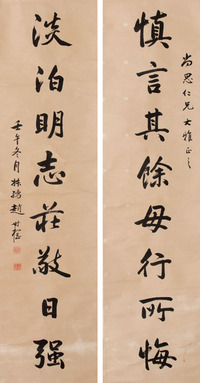 尚思仁兄大雅正之
慎言其餘毋行所悔
淡泊明志莊敬日强
壬午冬月 趙